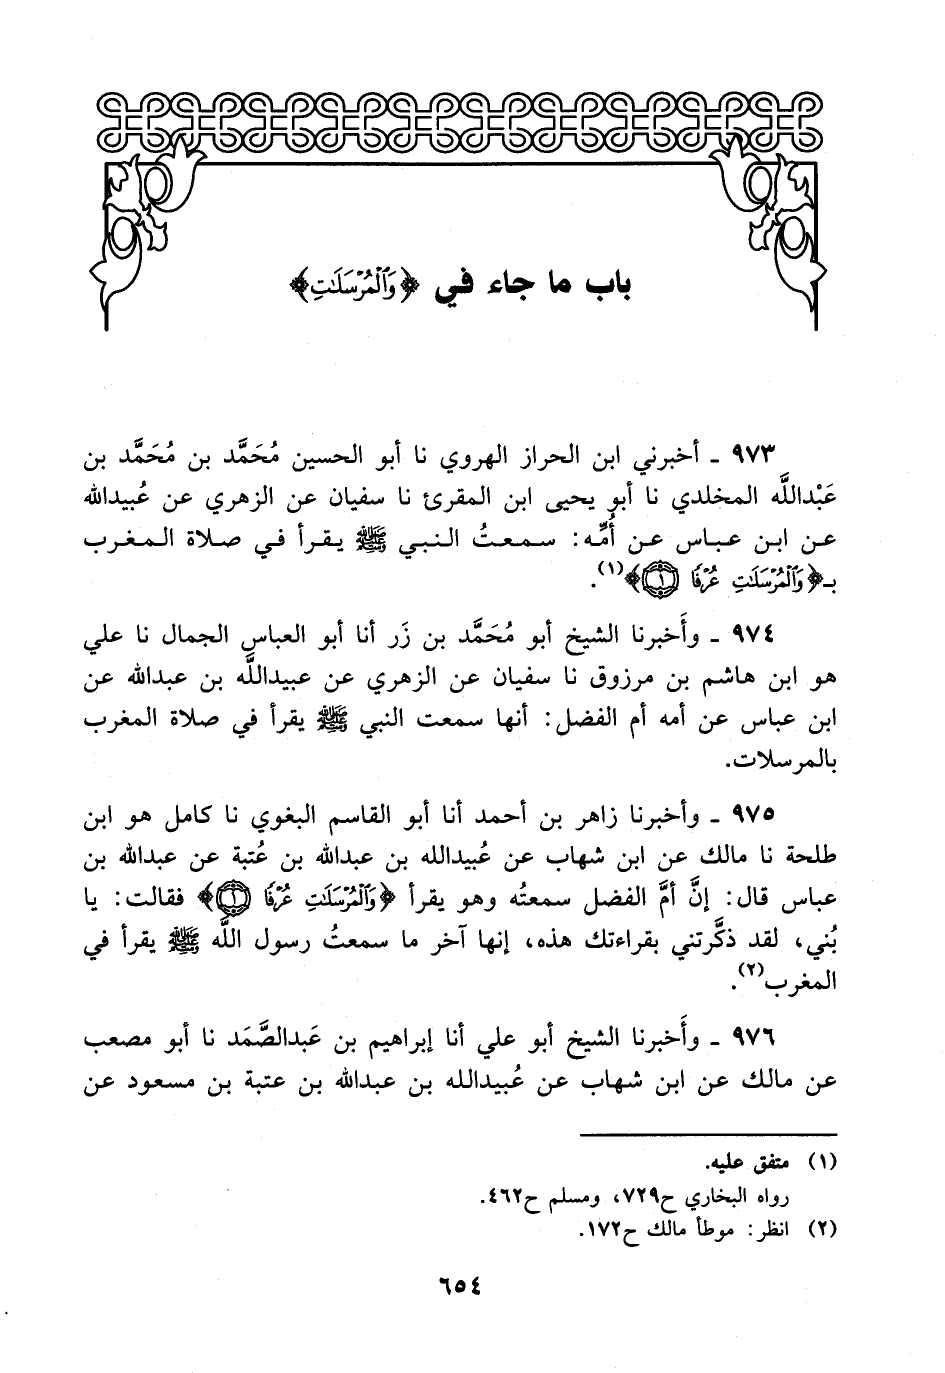 باب ما جاء في ﴿وَٱلْمُرْسَلَٰتِ﴾
٩٧٣ ـ أخبرني ابن الحراز الهروي نا أبو الحسين مُحَمَّد بن مُحَمَّد بن
عَبْداللَّه المخلدي نا أبو يحيى ابن المقرئ نا سفيان عن الزهري عن عُبيدالله
عن ابن عباس عن أُمِّه: سمعتُ النبي ﷺ يقرأ في صلاة المغرب
بـ﴿وَٱلْمُرْسَلَٰتِ عُرْفًا ۝١﴾(١).
٩٧٤ ـ وأَخبرنا الشيخ أبو مُحَمَّد بن زَر أنا أبو العباس الجمال نا علي
هو ابن هاشم بن مرزوق نا سفيان عن الزهري عن عبيداللَّه بن عبدالله عن
ابن عباس عن أمه أم الفضل: أنها سمعت النبي ﷺ يقرأ في صلاة المغرب
بالمرسلات.
٩٧٥ ـ وأخبرنا زاهر بن أحمد أنا أبو القاسم البغوي نا كامل هو ابن
طلحة نا مالك عن ابن شهاب عن عُبيدالله بن عبدالله بن عُتبة عن عبدالله بن
عباس قال: إنَّ أمَّ الفضل سمعتُه وهو يقرأ ﴿وَٱلْمُرْسَلَٰتِ عُرْفًا ۝١﴾ فقالت: يا
بُني، لقد ذكَّرتني بقراءتك هذه، إنها آخر ما سمعتُ رسول اللَّه ﷺ يقرأ في
المغرب(٢).
٩٧٦ ـ وأَخبرنا الشيخ أبو علي أنا إبراهيم بن عَبدالصَّمَد نا أبو مصعب
عن مالك عن ابن شهاب عن عُبيدالله بن عبدالله بن عتبة بن مسعود عن
(١) متفق عليه.
رواه البخاري ح٧٢٩، ومسلم ح٤٦٢.
(٢) انظر: موطأ مالك ح١٧٢.
٦٥٤